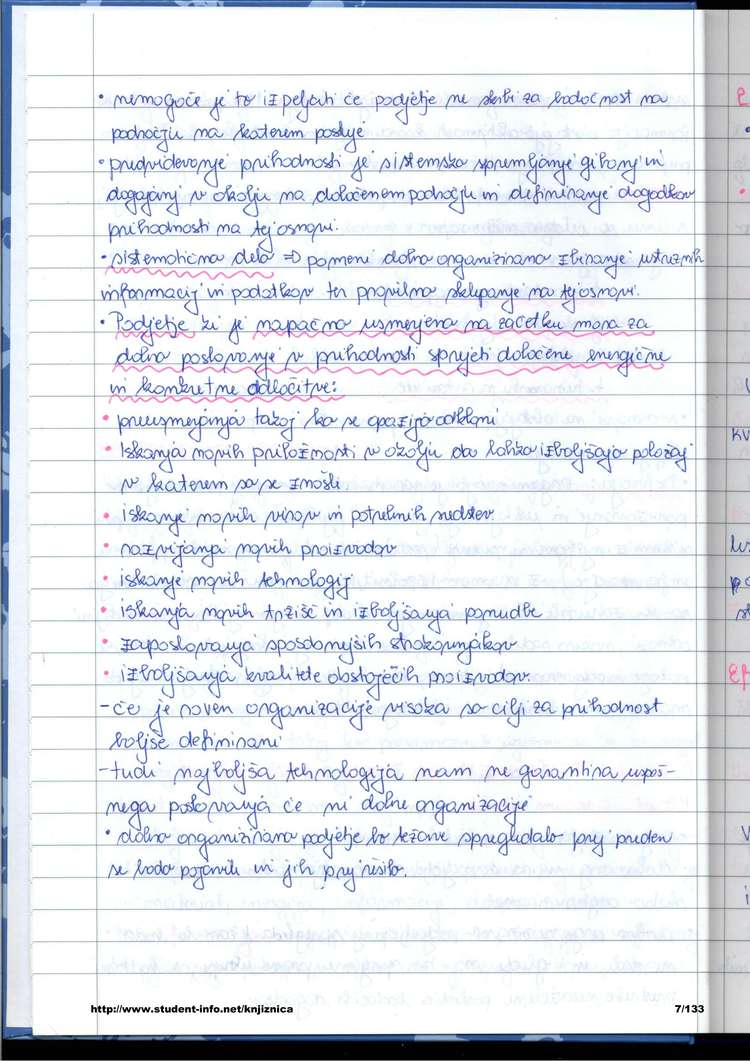 • nemogoče je to izpeljati če podjetje ne skrbi za bodočnost na
področju na katerem posluje
• predvidevanje prihodnosti je sistemsko spremljanje gibanj in
dogajanj v okolju na določenem področju in definiranje dogodkov
prihodnosti na tej osnovi.
• sistematično delo => pomeni dobro organizirano zbiranje ustreznih
informacij in podatkov ter pravilno sklepanje na tej osnovi.
• Podjetje ki je napačno usmerjeno na začetku mora za
dobro poslovanje v prihodnosti sprejeti določene energične
in konkretne odločitve:
• preusmerjanja takoj ko se opazijo odkloni
• Iskanja novih priložnosti v okolju da lahko izboljšajo položaj
v katerem so se znašli
• iskanje novih virov in potrebnih sredstev
• razvijanja novih proizvodov
• iskanje novih tehnologij
• iskanja novih tržišč in izboljšanja ponudbe
• zaposlovanja sposobnejših strokovnjakov
• izboljšanja kvalitete obstoječih proizvodov.
- če je raven organizacije visoka so cilji za prihodnost
boljše definirani
- tudi najboljša tehnologija nam ne garantira uspeš-
nega poslovanja če ni dobre organizacije
• dobro organizirano podjetje bo težave spregledalo prej preden
se bodo pojavili in jih prej rešilo.
http://www.student-info.net/knjiznica 7/133